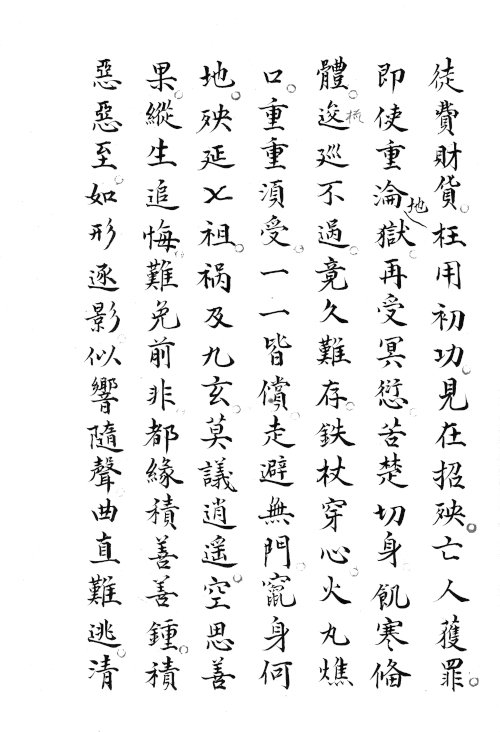 徒費財貨枉用初功見在招殃亡人獲罪
即使重淪地獄再受冥愆苦楚切身飢寒俻
體逡巡不過竟久難存鉄杖穿心火丸燋
口重重須受一一皆償走避無門竄身何
地殃延七祖禍及九玄莫議逍遥空思善
果縱生追悔難免前非都緣積善善鍾積
惡惡至如形逐影似響隨聲曲直難逃清